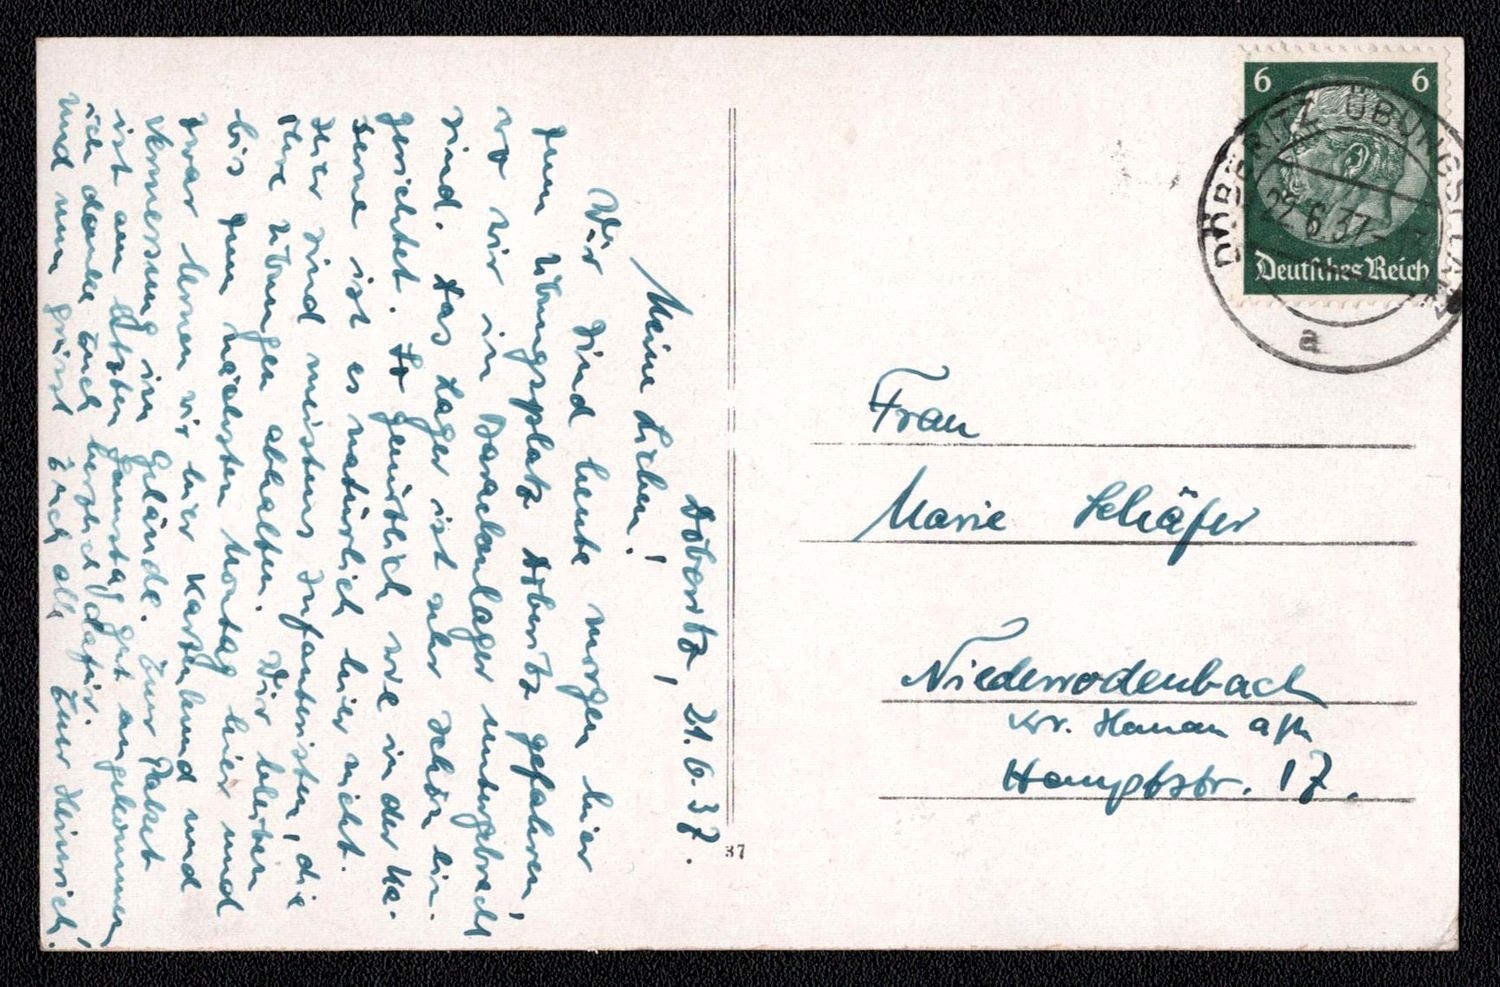 Döberitz, 21.6.37.
Meine Lieben!
Wir sind heute morgen hier
zum Übungsplatz Döberitz gefahren,
wo wir im Barackenlager untergebracht
sind. Das Lager ist sehr schön ein-
gerichtet. So gemütlich wie in der Ka-
serne ist es natürlich hier nicht.
Hier sind meistens Infanteristen, die
ihre Übungen abhalten. Wir bleiben
bis zum nächsten Montag hier und
zwar lernen wir hier Kartenkund und
Vermessung im Gelände. Euer Paket
ist am letzten Samstag gut angekommen
ich danke Euch herzlich dafür.
Und nun grüsst Euch alle Euer Heinrich!
6 6
Deutsches Reich
DÖBERITZ-ÜBUNGSPLATZ
22.6.37
a
Frau
Marie Schäfer
Niederrodenbach
Kr. Hanau a/M
Hauptstr. 17.
37